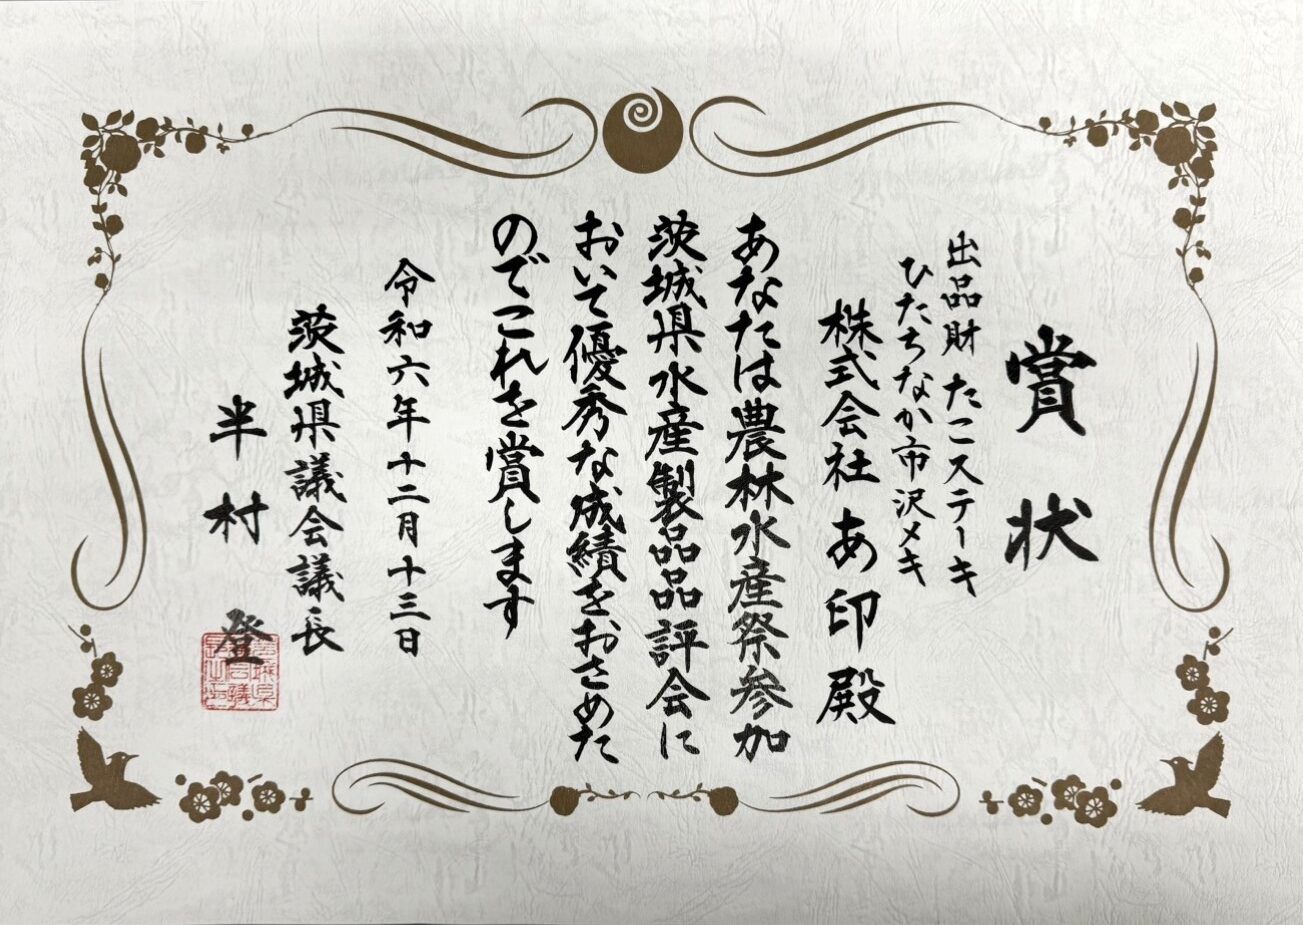 賞状
出品財 たこステーキ
ひたちなか市沢メキ
株式会社あ印殿
あなたは農林水産祭参加
茨城県水産製品品評会に
おいて優秀な成績をおさめた
のでこれを賞します
令和六年十二月十三日
茨城県議会議長
半村登